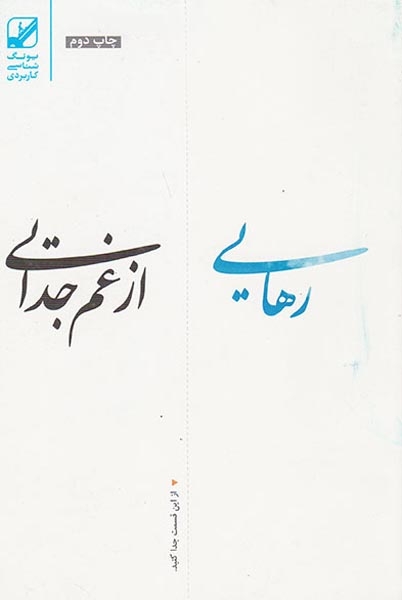 یونگ
شناسی
کاربردی
چاپ دوم
رهایی
از غم جدائی
از این قسمت جدا کنید.